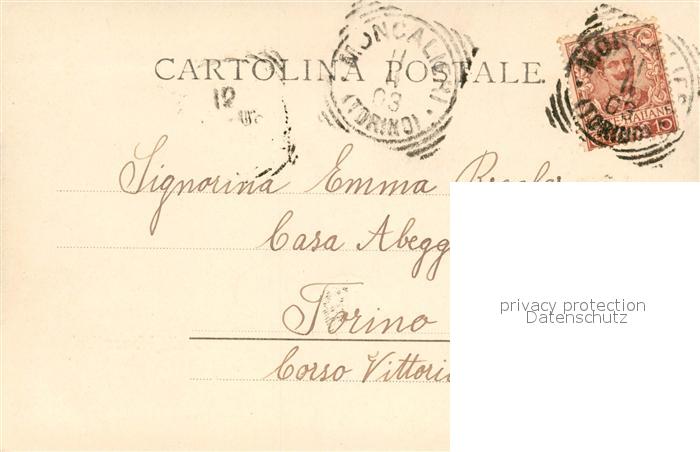 CARTOLINA POSTALE
MONCALIERI
11
4
03
(TORINO)
MONCALIERI
11
4
03
(TORINO)
ITALIANE
12
Signorina Emma
Casa Abegg
Torino
Corso Vittorio
privacy protection
Datenschutz